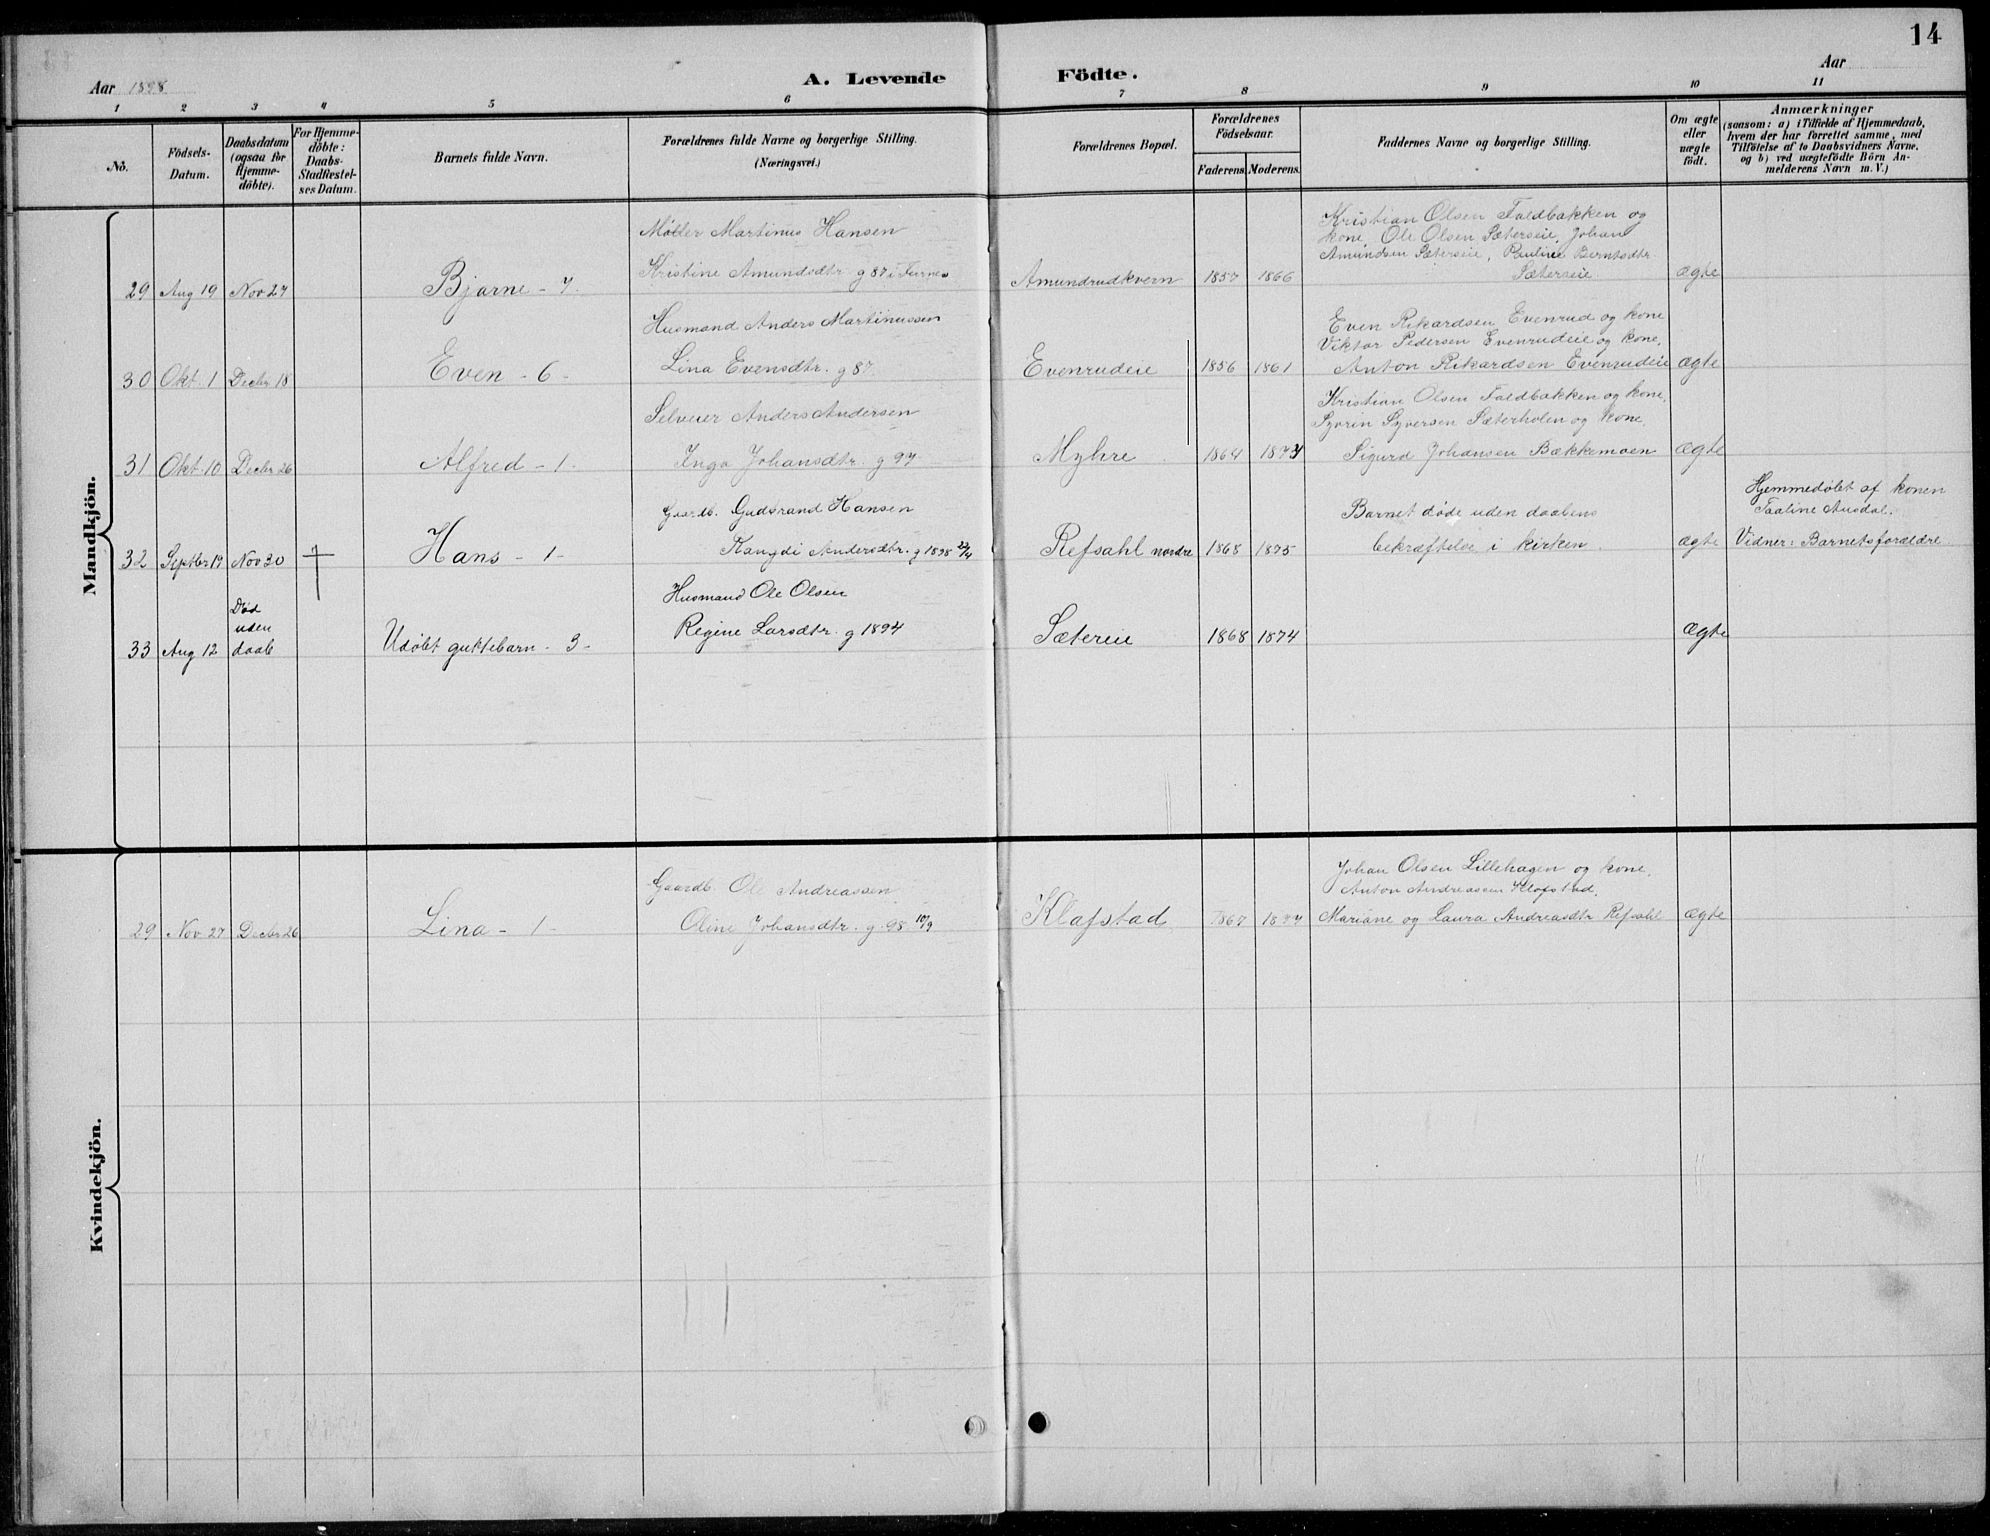 14
Aar 1898
A. Levende Födte.
Aar
1 2 3 4 5 6 7 8 9 10 11
No.
Födsels-Datum.
Daabsdatum (ogsaa for Hjemme-döbte).
For Hjemme-döbte: Daabs-Stadfæstel-ses Datum.
Barnets fulde Navn.
Forældrenes fulde Navne og borgerlige Stilling. (Næringsvei.)
Forældrenes Bopæl.
Forældrenes Födselsaar.
Faderens. Moderens.
Faddernes Navne og borgerlige Stilling.
Om ægte eller uægte födt.
Anmærkninger
(saasom: a) i Tilfælde af Hjemmedaab, hvem der har forrettet samme, med Tilföielse af to Daabsvidners Navne. og b) ved uægtefödte Börn An-melderens Navn m.V.)
Mandkjön.
Møller Martinus Hansen
Kristine Amundsdtr g 87 i Furnes
29 Aug 19 Nov 27 Bjarne - 7. Amundrudkvern 1857 1866
Kristian Olsen Faldbakken og
kone, Ole Olsen Sæterseie, Johan
Amundsen Sæterseie, Pauline Berntsdtr
Sæterseie. ægte
Husmand Anders Martinussen
Lina Evensdtr. g 87.
30 Okt. 1 Decbr 18 Even - 6 - Evenrudeie 1856 1861
Even Rikardsen Evenrud og kone
Viktor Pedersen Evenrudeie og kone.
Anton Rikardsen Evenrudeie ægte
Selveier Anders Andersen
Inga Johansdtr. g 97.
31 Okt. 10 Decbr 26 Alfred - 1 - Myhre 1864 1874
Kristian Olsen Faldbakken og kone.
Syvrin Syversen Sæterholen og kone.
Sigurd Johansen Bækkemoen ægte
Gaardb. Gudbrand Hansen
Rangdi Andersdtr. g 1898 22/4
32 Septbr 19 Nov 30 Hans - 1 - Refsahl nordre 1868 1875
Barnet døde uden daabens
bekræftelse i kirken. ægte
Hjemmedøbt af konen
Taaline Ausdal.
Vidner: Barnets forældre.
Husmand Ole Olsen
Regine Larsdtr. g 1894
33 Aug 12 Død uden daab Udøbt guttebarn - 3 - Sætereie 1868 1874 ægte
Kvindekjön.
Gaardb. Ole Andreassen
Oline Johansdtr. g. 98 10/9
29 Nov 27 Decbr 26 Lina - 1 - Klafstad 1867 1874
Johan Olsen Lillehagen og kone,
Anton Andreassen Klofstad,
Mariane og Laura Andreasdtr Refsahl ægte